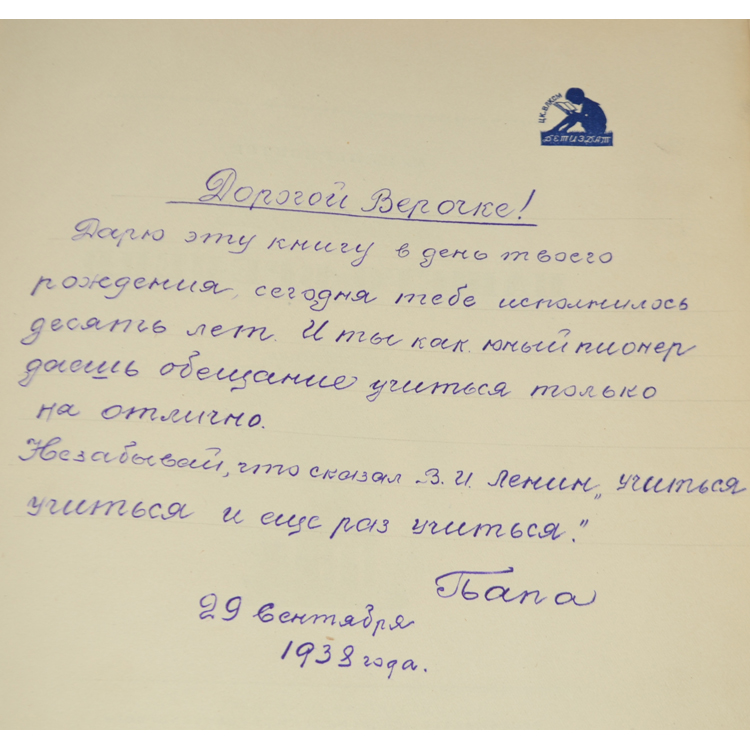 ЦК ВЛКСМ
ДЕТИЗДАТ
Дорогой Верочке!
Дарю эту книгу в день твоего
рождения, сегодня тебе исполнилось
десять лет. И ты как юный пионер
даешь обещание учиться только
на отлично.
Незабывай, что сказал В. И. Ленин „учиться
учиться и еще раз учиться."
Папа
29 Сентября
1938 года.